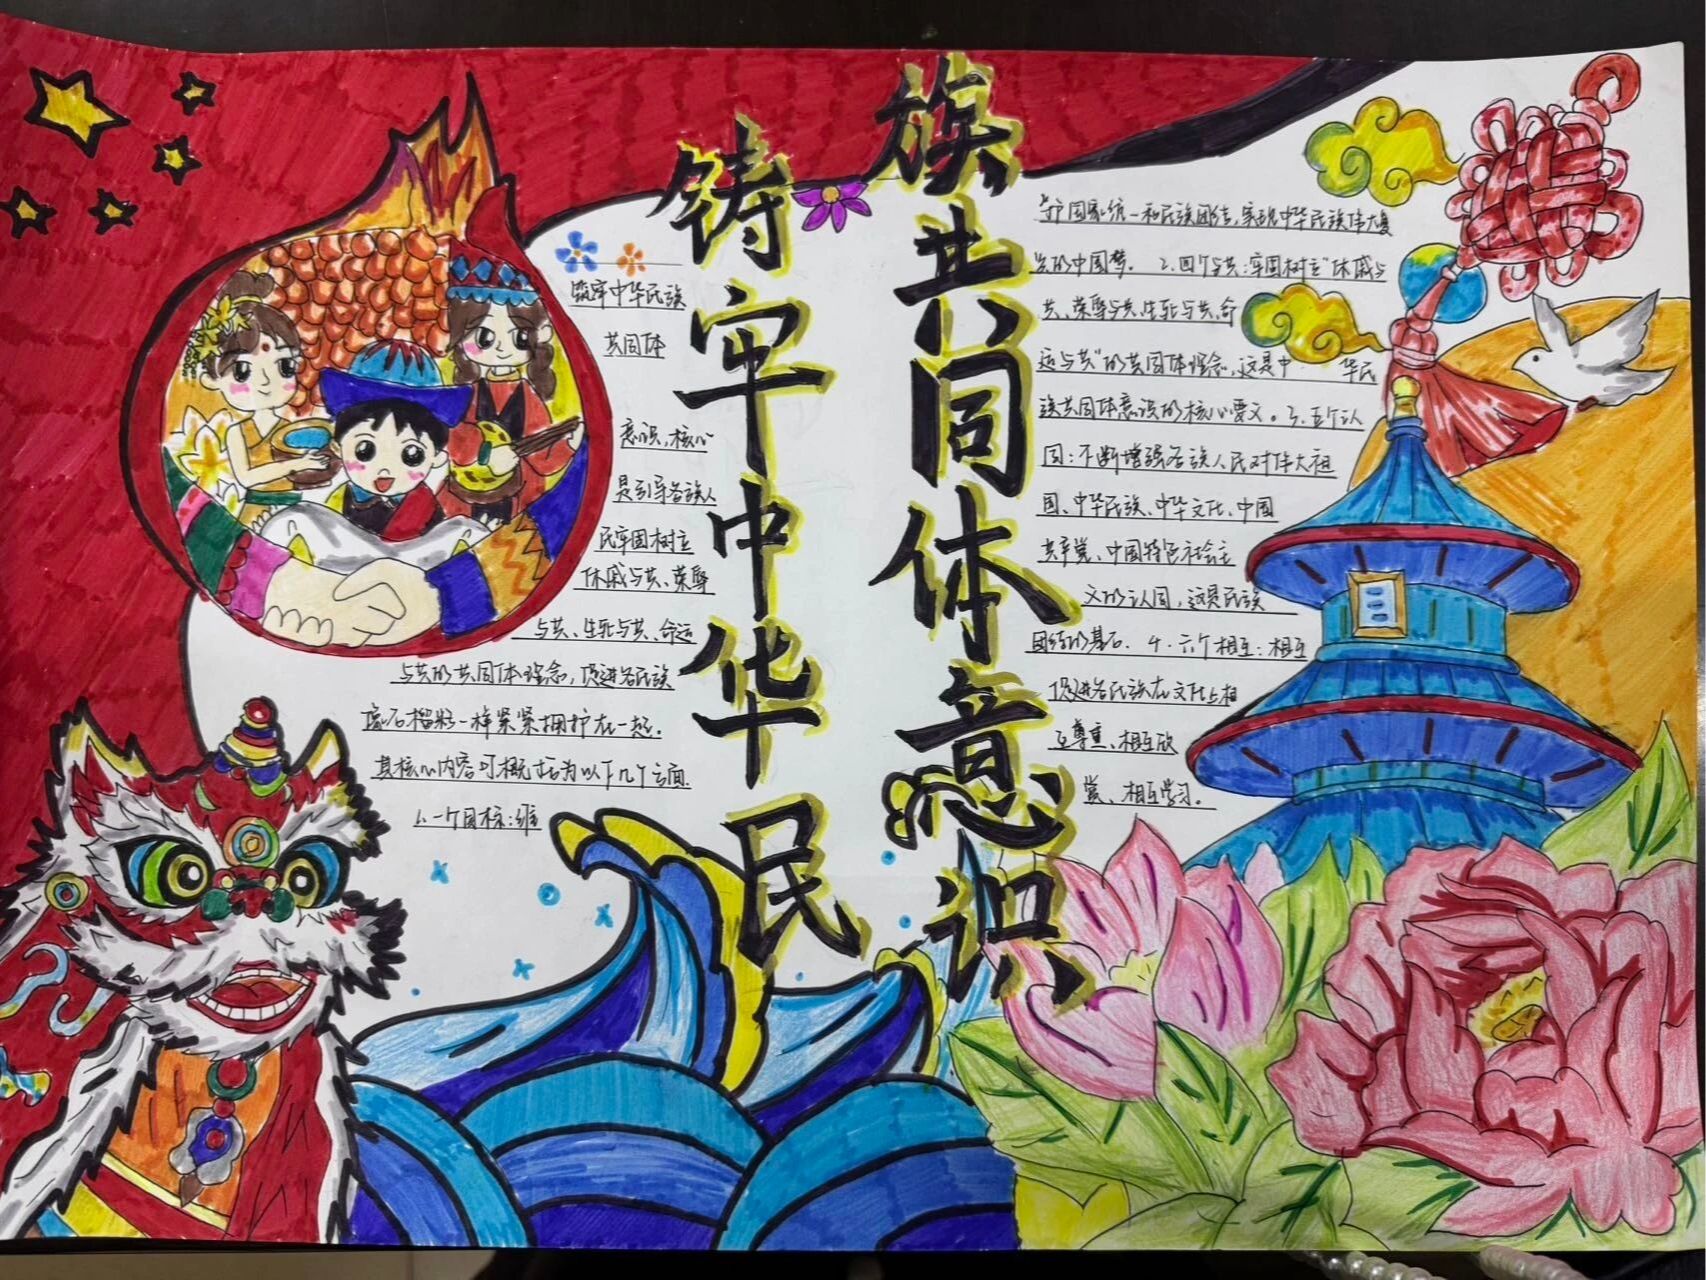 铸牢中华民
族共同体意识
筑牢中华民族
共同体
意识，核心
是引导各族人
民牢固树立
休戚与共、荣辱
与共、生死与共、命运
与共的共同体理念，促进各民族
像石榴籽一样紧紧拥护在一起。
其核心内容可概括为以下几个方面.
1.一个目标：维
护国家统一和民族团结，实现中华民族伟大复
兴的中国梦。 2.四个与共：牢固树立“休戚与
共、荣辱与共、生死与共、命
运与共”的共同体理念，这是中 华民
族共同体意识的核心要义。3.五个认
同：不断增强各族人民对伟大祖
国、中华民族、中华文化、中国
共产党、中国特色社会主
义的认同，这是民族
团结的基石. 4.六个相互：相互
促进各民族在文化上相
互尊重、相互欣
赏、相互学习。